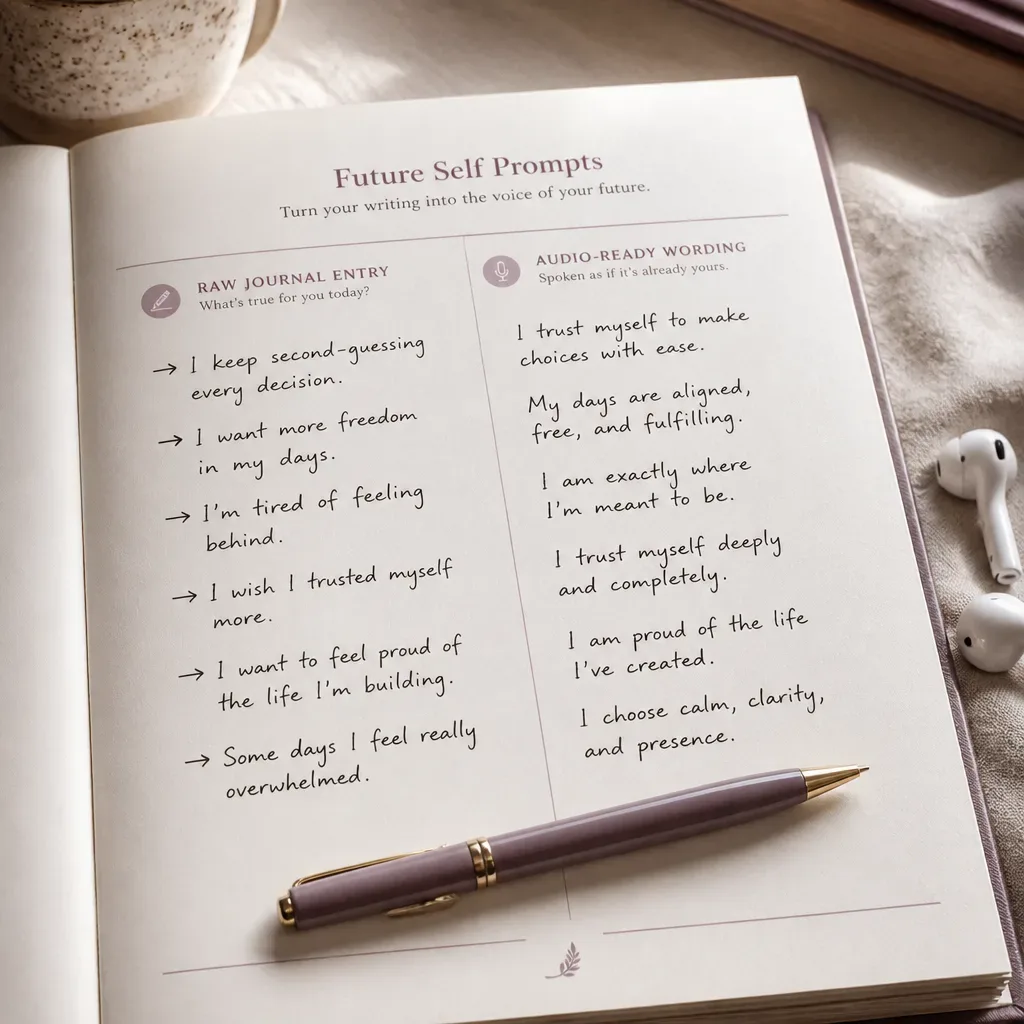 Future Self Prompts
Turn your writing into the voice of your future.
RAW JOURNAL ENTRY
What's true for you today?
→ I keep second-guessing
every decision.
→ I want more freedom
in my days.
→ I'm tired of feeling
behind.
→ I wish I trusted myself
more.
→ I want to feel proud of
the life I'm building.
→ Some days I feel really
overwhelmed.
AUDIO-READY WORDING
Spoken as if it's already yours.
I trust myself to make
choices with ease.
My days are aligned,
free, and fulfilling.
I am exactly where
I'm meant to be.
I trust myself deeply
and completely.
I am proud of the life
I've created.
I choose calm, clarity,
and presence.